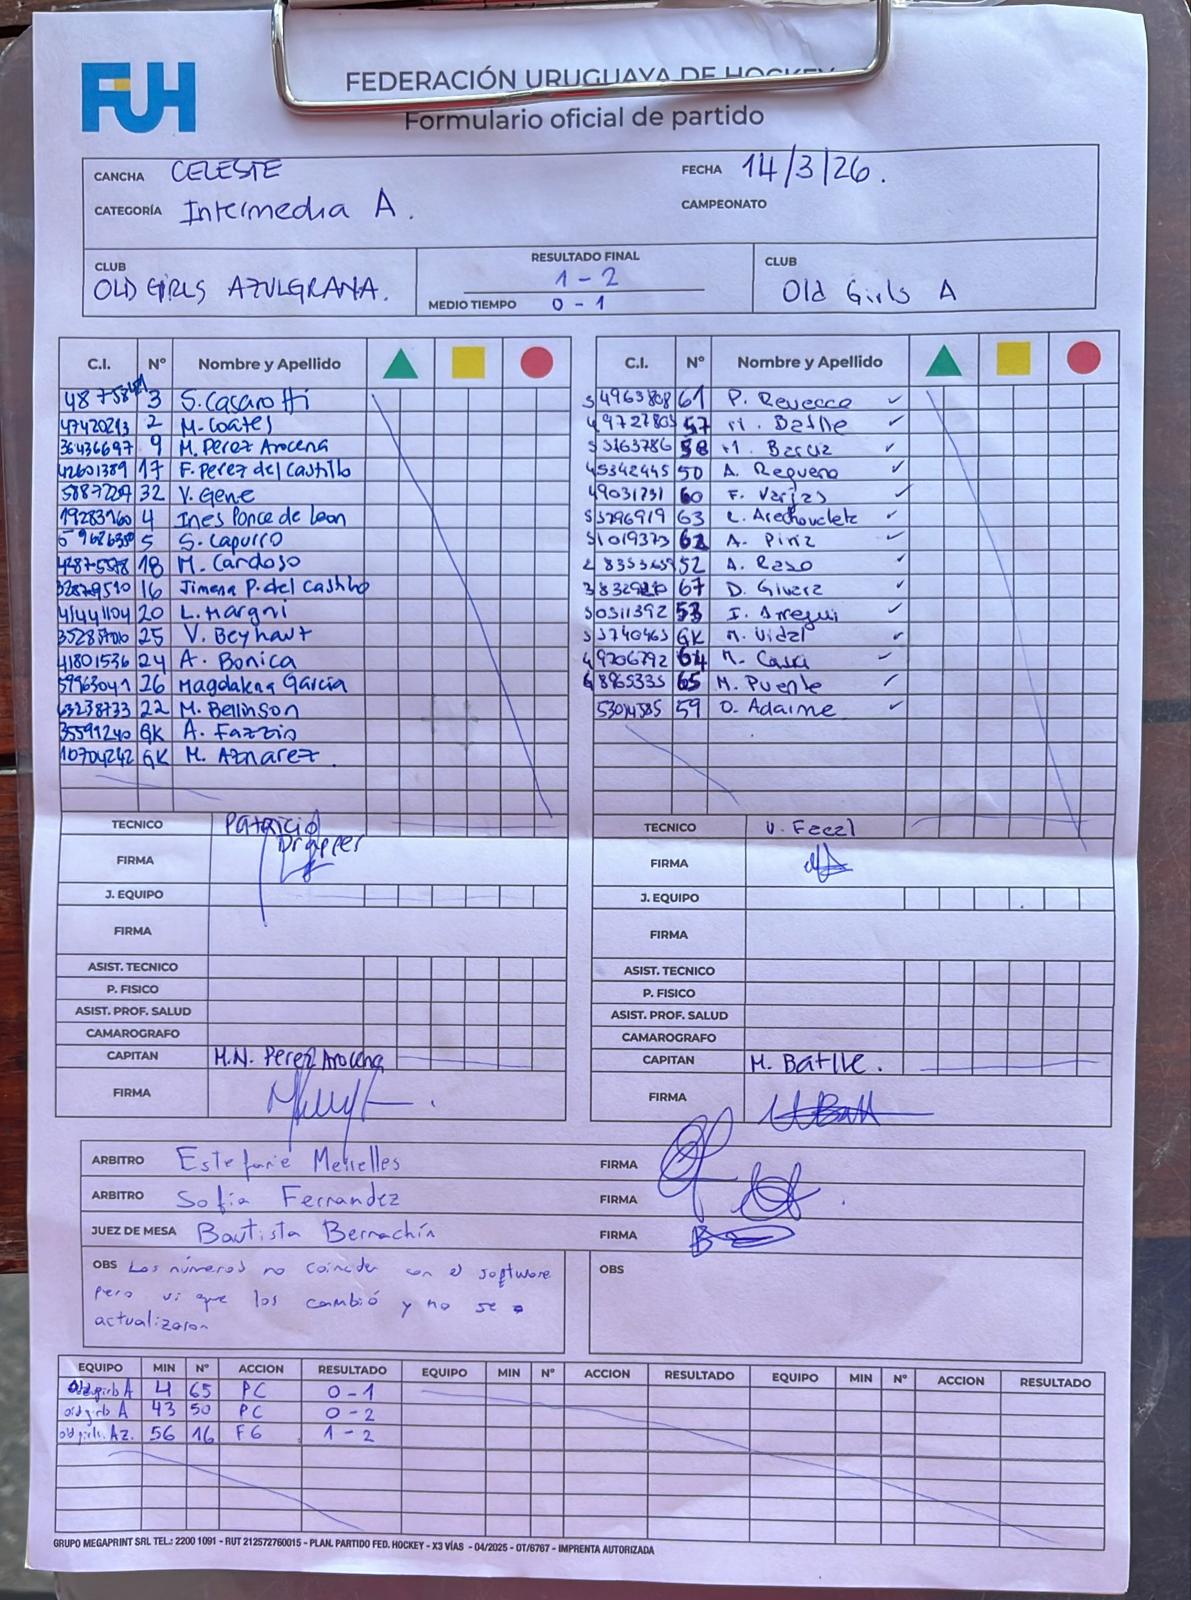 FUH
FEDERACIÓN URUGUAYA DE HOCKEY
Formulario oficial de partido
CANCHA CELESTE FECHA 14/3/26.
CATEGORÍA Intermedia A. CAMPEONATO
CLUB OLD GIRLS AZULGRANA.
RESULTADO FINAL 1 - 2
MEDIO TIEMPO 0 - 1
CLUB Old Girls A
C.I. Nº Nombre y Apellido
3 S. Casarotti
47420213 2 M. Coates
36436697 9 M. Perez Arocena
42601389 17 F. Perez del Castillo
32 V. Gene
19283160 4 Ines Ponce de Leon
5 S. Capurro
18 M. Cardoso
32879510 16 Jimena P. del Castillo
20 L. Margni
25 V. Beyhaut
41801536 24 A. Bonica
26 Magdalena Garcia
63238733 22 M. Bellinson
35591240 GK A. Fazzio
10704242 GK M. Aznarez.
TECNICO Patricio Draper
FIRMA
J. EQUIPO
FIRMA
ASIST. TECNICO
P. FISICO
ASIST. PROF. SALUD
CAMAROGRAFO
CAPITAN M.N. Perez Arocena
FIRMA
C.I. Nº Nombre y Apellido
61 P. Revecca ✓
57 M. Batlle ✓
53163786 58 M. Barcia ✓
45342445 50 A. Regueno ✓
49031731 60 F. Varjas ✓
53296919 63 ✓
51019373 62 A. Piriz ✓
52 A. Raso ✓
67 D. Givera ✓
50511392 53 I. Arregui ✓
53740463 GK M. Vidal ✓
49206792 64 M. ✓
65 M. Puente ✓
53014585 59 O. Adaime ✓
TECNICO V. Facal
FIRMA
J. EQUIPO
FIRMA
ASIST. TECNICO
P. FISICO
ASIST. PROF. SALUD
CAMAROGRAFO
CAPITAN M. Batlle.
FIRMA
ARBITRO Estefanie Meirelles FIRMA
ARBITRO Sofia Fernandez FIRMA
JUEZ DE MESA Bautista Bernachín FIRMA
OBS Los números no coinciden con el software
pero vi que los cambió y no se
actualizaron
OBS
EQUIPO MIN Nº ACCION RESULTADO EQUIPO MIN Nº ACCION RESULTADO EQUIPO MIN Nº ACCION RESULTADO
Old girls A 4 65 PC 0 - 1
old girls A 43 50 PC 0 - 2
old girls Az. 56 16 FG 1 - 2
GRUPO MEGAPRINT SRL TEL.: 2200 1091 - RUT 212572760015 - PLAN. PARTIDO FED. HOCKEY - X3 VÍAS - 04/2025 - OT/6767 - IMPRENTA AUTORIZADA